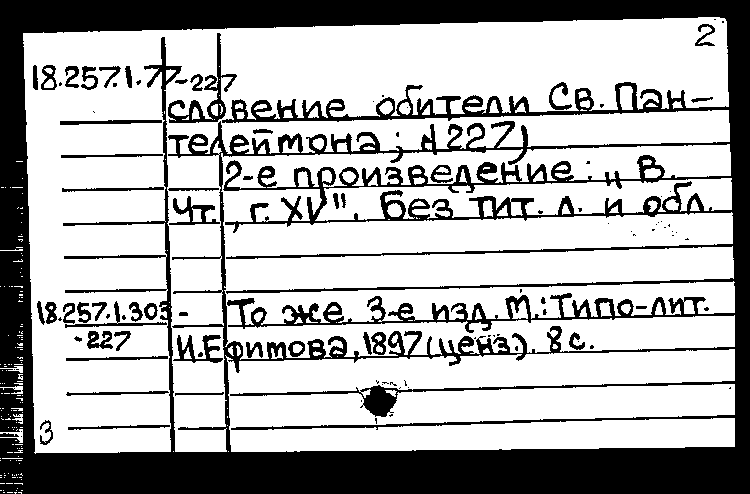 2
18.257.1.77-227
словение обители Св. Пан-
телеймона; 227)
2-е произведение: „В.
Чт., г. XV". Без тит. л. и обл.
18.257.1.303- То же. 3-е изд. М.: Типо-лит.
-227 И.Ефимова, 1897 (ценз.). 8 с.
3